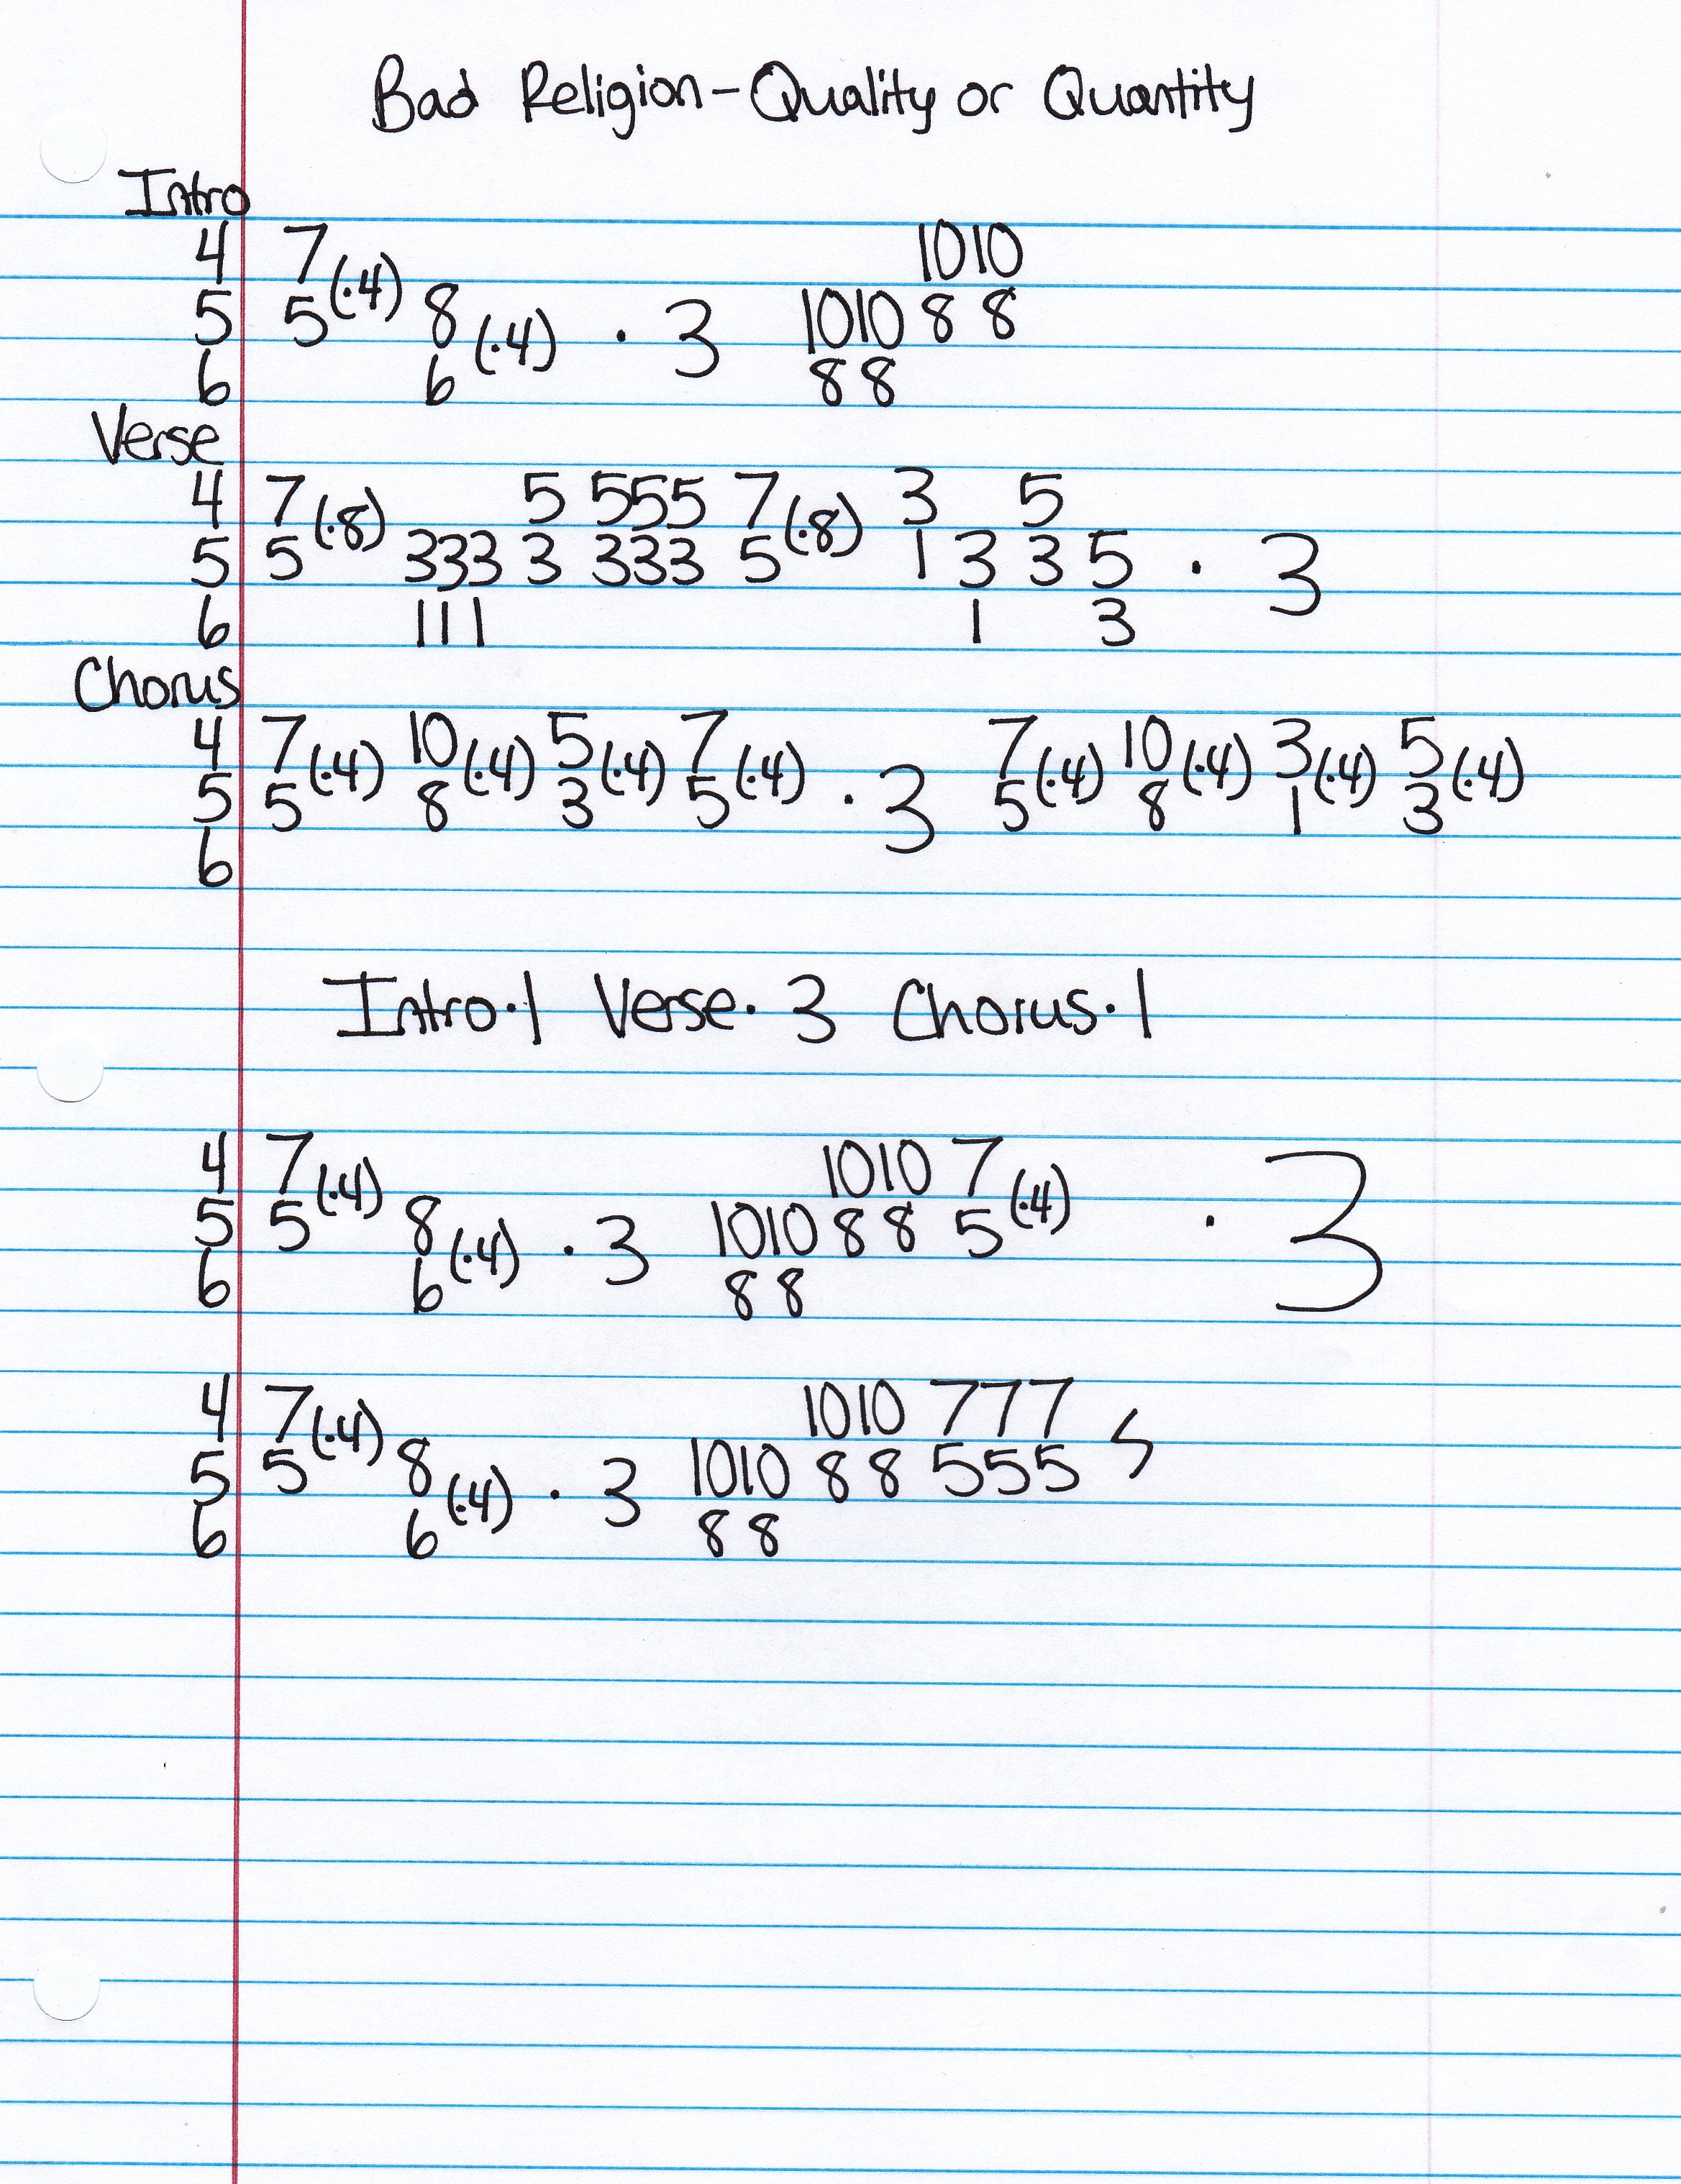 Bad Religion-Quality or Quantity
Intro
4 7 (·4) 1010
5 5 8 (·4) · 3 1010 8 8
6 6 88
Verse
4 7 (·8) 5 555 7 (·8) 3 5
5 5 333 3 333 5 1 3 3 5 · 3
6 111 1 3
Chorus
4 7 (·4) 10 (·4) 5 (·4) 7 (·4) 7 (·4) 10 (·4) 3 (·4) 5 (·4)
5 5 8 3 5 · 3 5 8 1 3
6
Intro·1 Verse·3 Chorus·1
4 7 (·4) 1010 7 (·4)
5 5 8 (·4) · 3 1010 8 8 5 · 3
6 6 88
4 7 (·4) 1010 777
5 5 8 (·4) · 3 1010 88 555
6 6 88